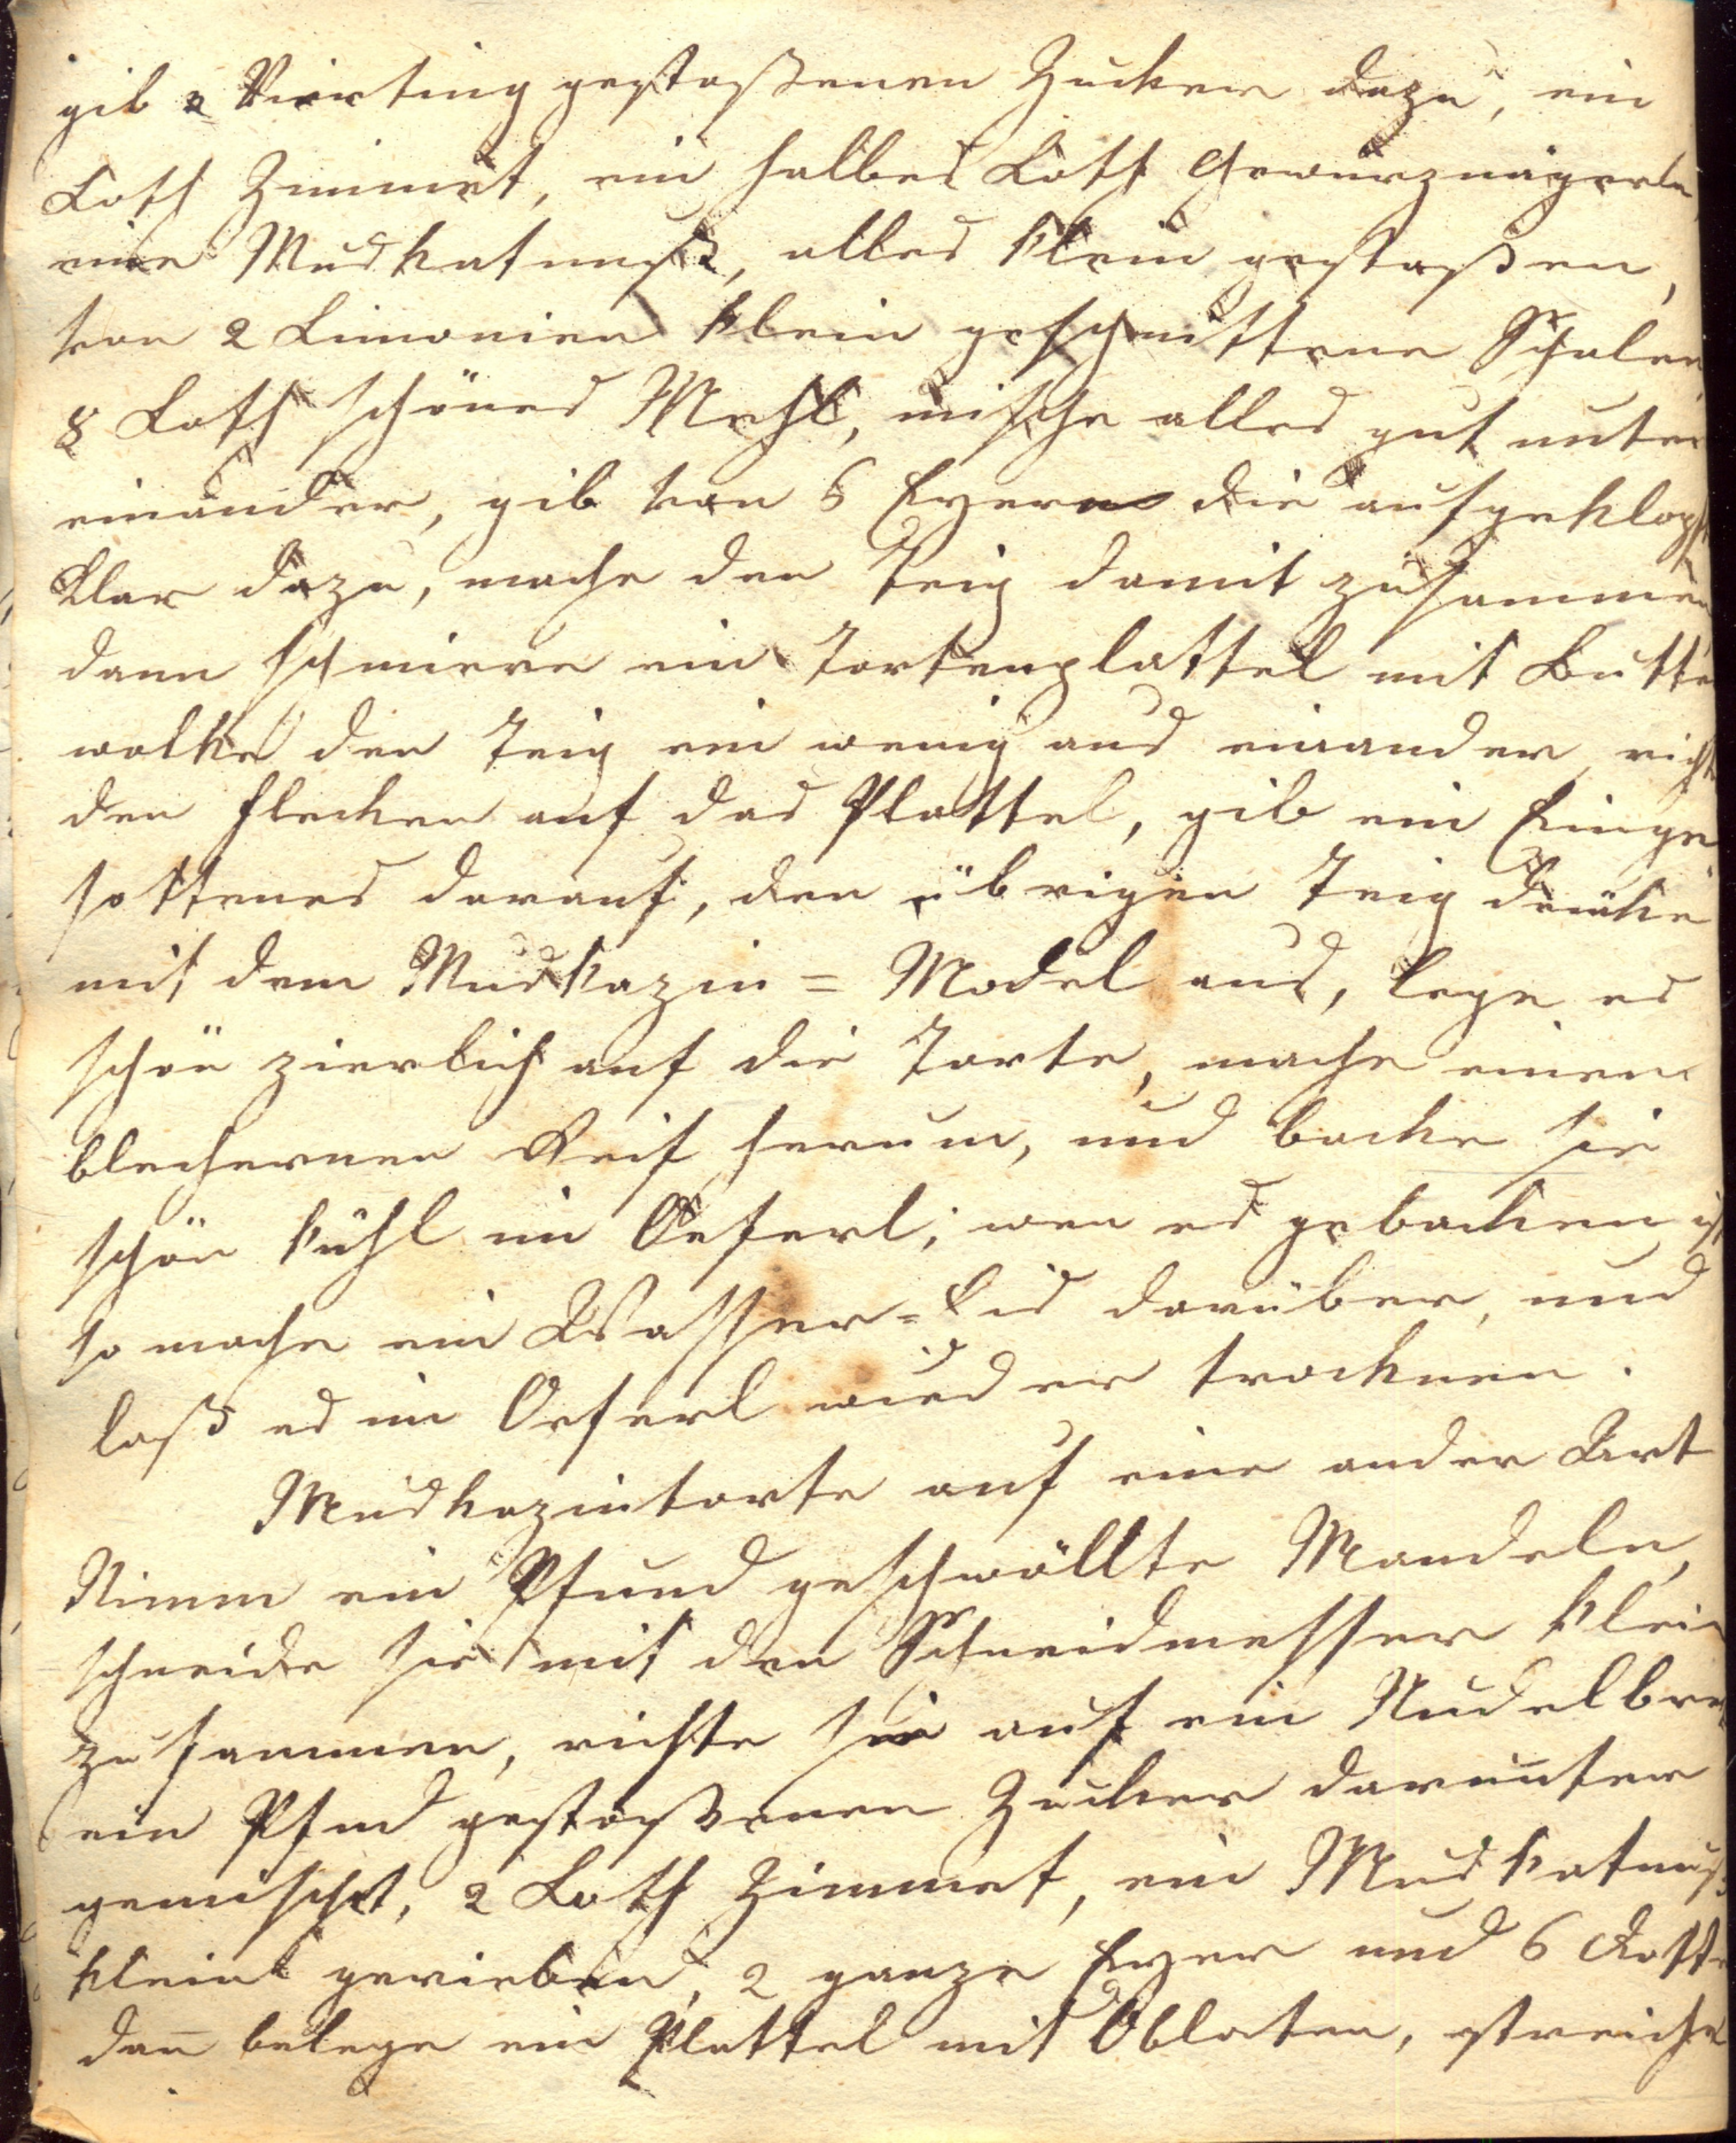 gib 2 Vierting gestoßenen Zucker dazu, ein
Loth Zimmet, ein halbes Loth Gewürznägerln,
eine Muskatnuß, alles klein gestoßen,
von 2 Limonien klein geschnittene Schalen
8 Loth schönes Mehl, mische alles gut unter
einander, gib von 6 Eyern die aufgeklopfte
Klar dazu, mache den Teig damit zusammen
dann schmiere ein Tortenplattel mit Butter
walke den Teig ein wenig aus einander, richte
den Flecken auf das Plattel, gib ein Einge
sottenes darauf, den übrigen Teig drücke
mit dem Muskazin = Model aus, lege es
schön zierlich auf die Torte, mache einen
blechernen Reif herum, und backe sie
schön kühl im Oeferl; wen es gebacken ist
so mache ein Wasser = Eis darüber, und
laß es im Oeferl wieder trocknen.
Muskazintorte auf eine ander Art
Nimm ein Pfund geschwöllte Mandeln,
schneide sie mit den Schneidmesser klein
zusammen, richte sie auf ein Nudelbret
ein Pfund gestoßenen Zucker darunter
gemischt, 2 Loth Zimmet, ein Muskatnuß
klein gerieben, 2 ganze Eyer und 6 Dotter
dan̄ belege ein Plattel mit Oblaten, streiche